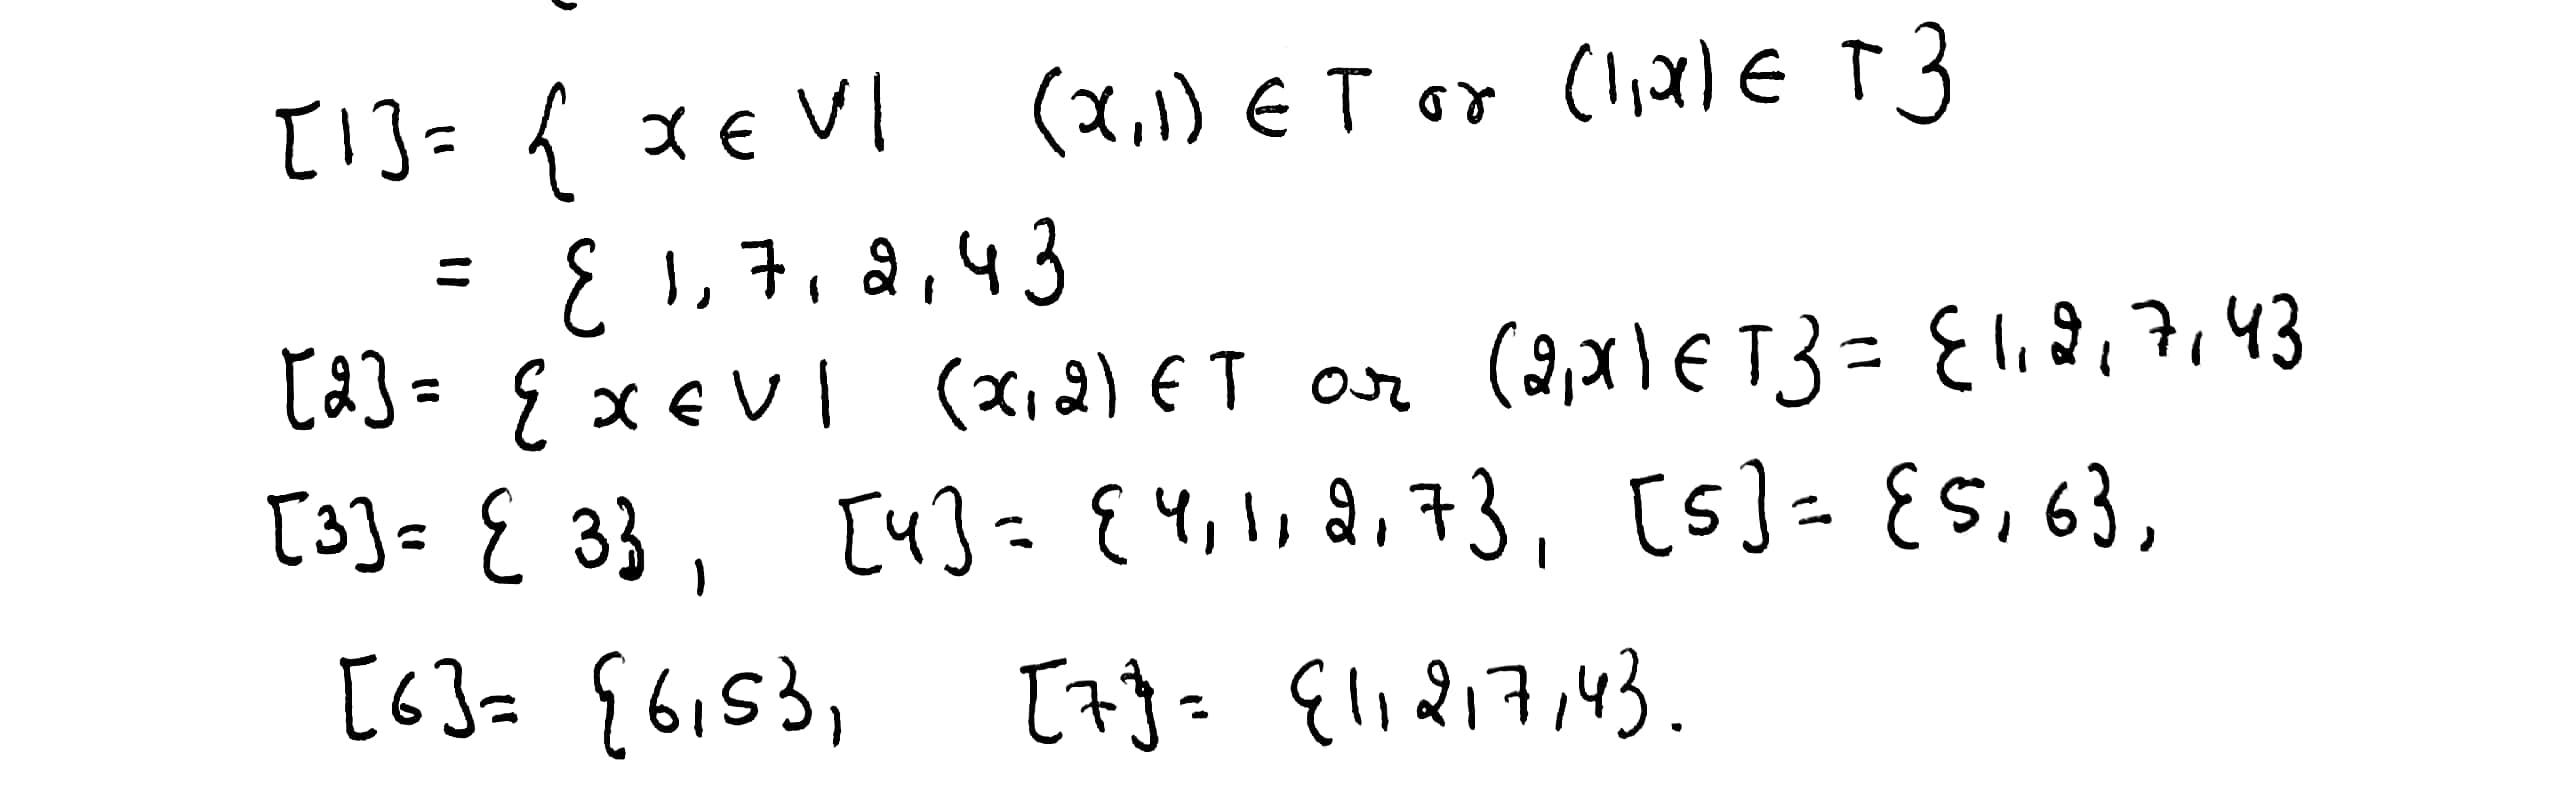 [1] = { x ∈ V | (x,1) ∈ T or (1,x) ∈ T }
= { 1, 7, 2, 4 }
[2] = { x ∈ V | (x,2) ∈ T or (2,x) ∈ T } = { 1, 2, 7, 4 }
[3] = { 3 }, [4] = { 4, 1, 2, 7 }, [5] = { 5, 6 },
[6] = { 6, 5 }, [7] = { 1, 2, 7, 4 }.